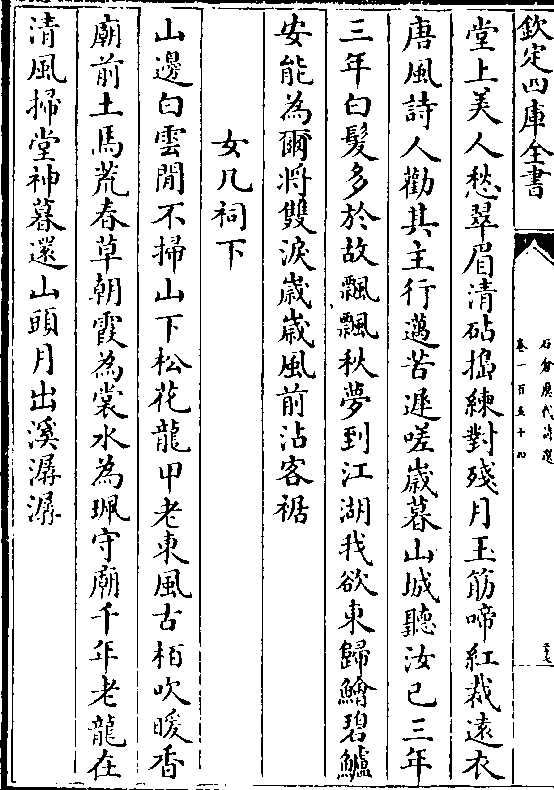 欽定四庫全書
石倉歷代詩選
卷一百五十九
堂上美人愁翠眉清砧搗練對殘月玉筯啼紅裁遠衣
唐風詩人勸其主行邁苦遲嗟歲暮山城聽汝已三年
三年白髮多於故飄飄秋夢到江湖我欲東歸鱠碧鱸
安能為爾將雙淚歲歲風前沾客裾
女几祠下
山邊白雲閒不掃山下松花龍甲老東風古栢吹暖香
廟前土馬荒春草朝霞為裳水為珮守廟千年老龍在
清風掃堂神暮還山頭月出溪潺潺